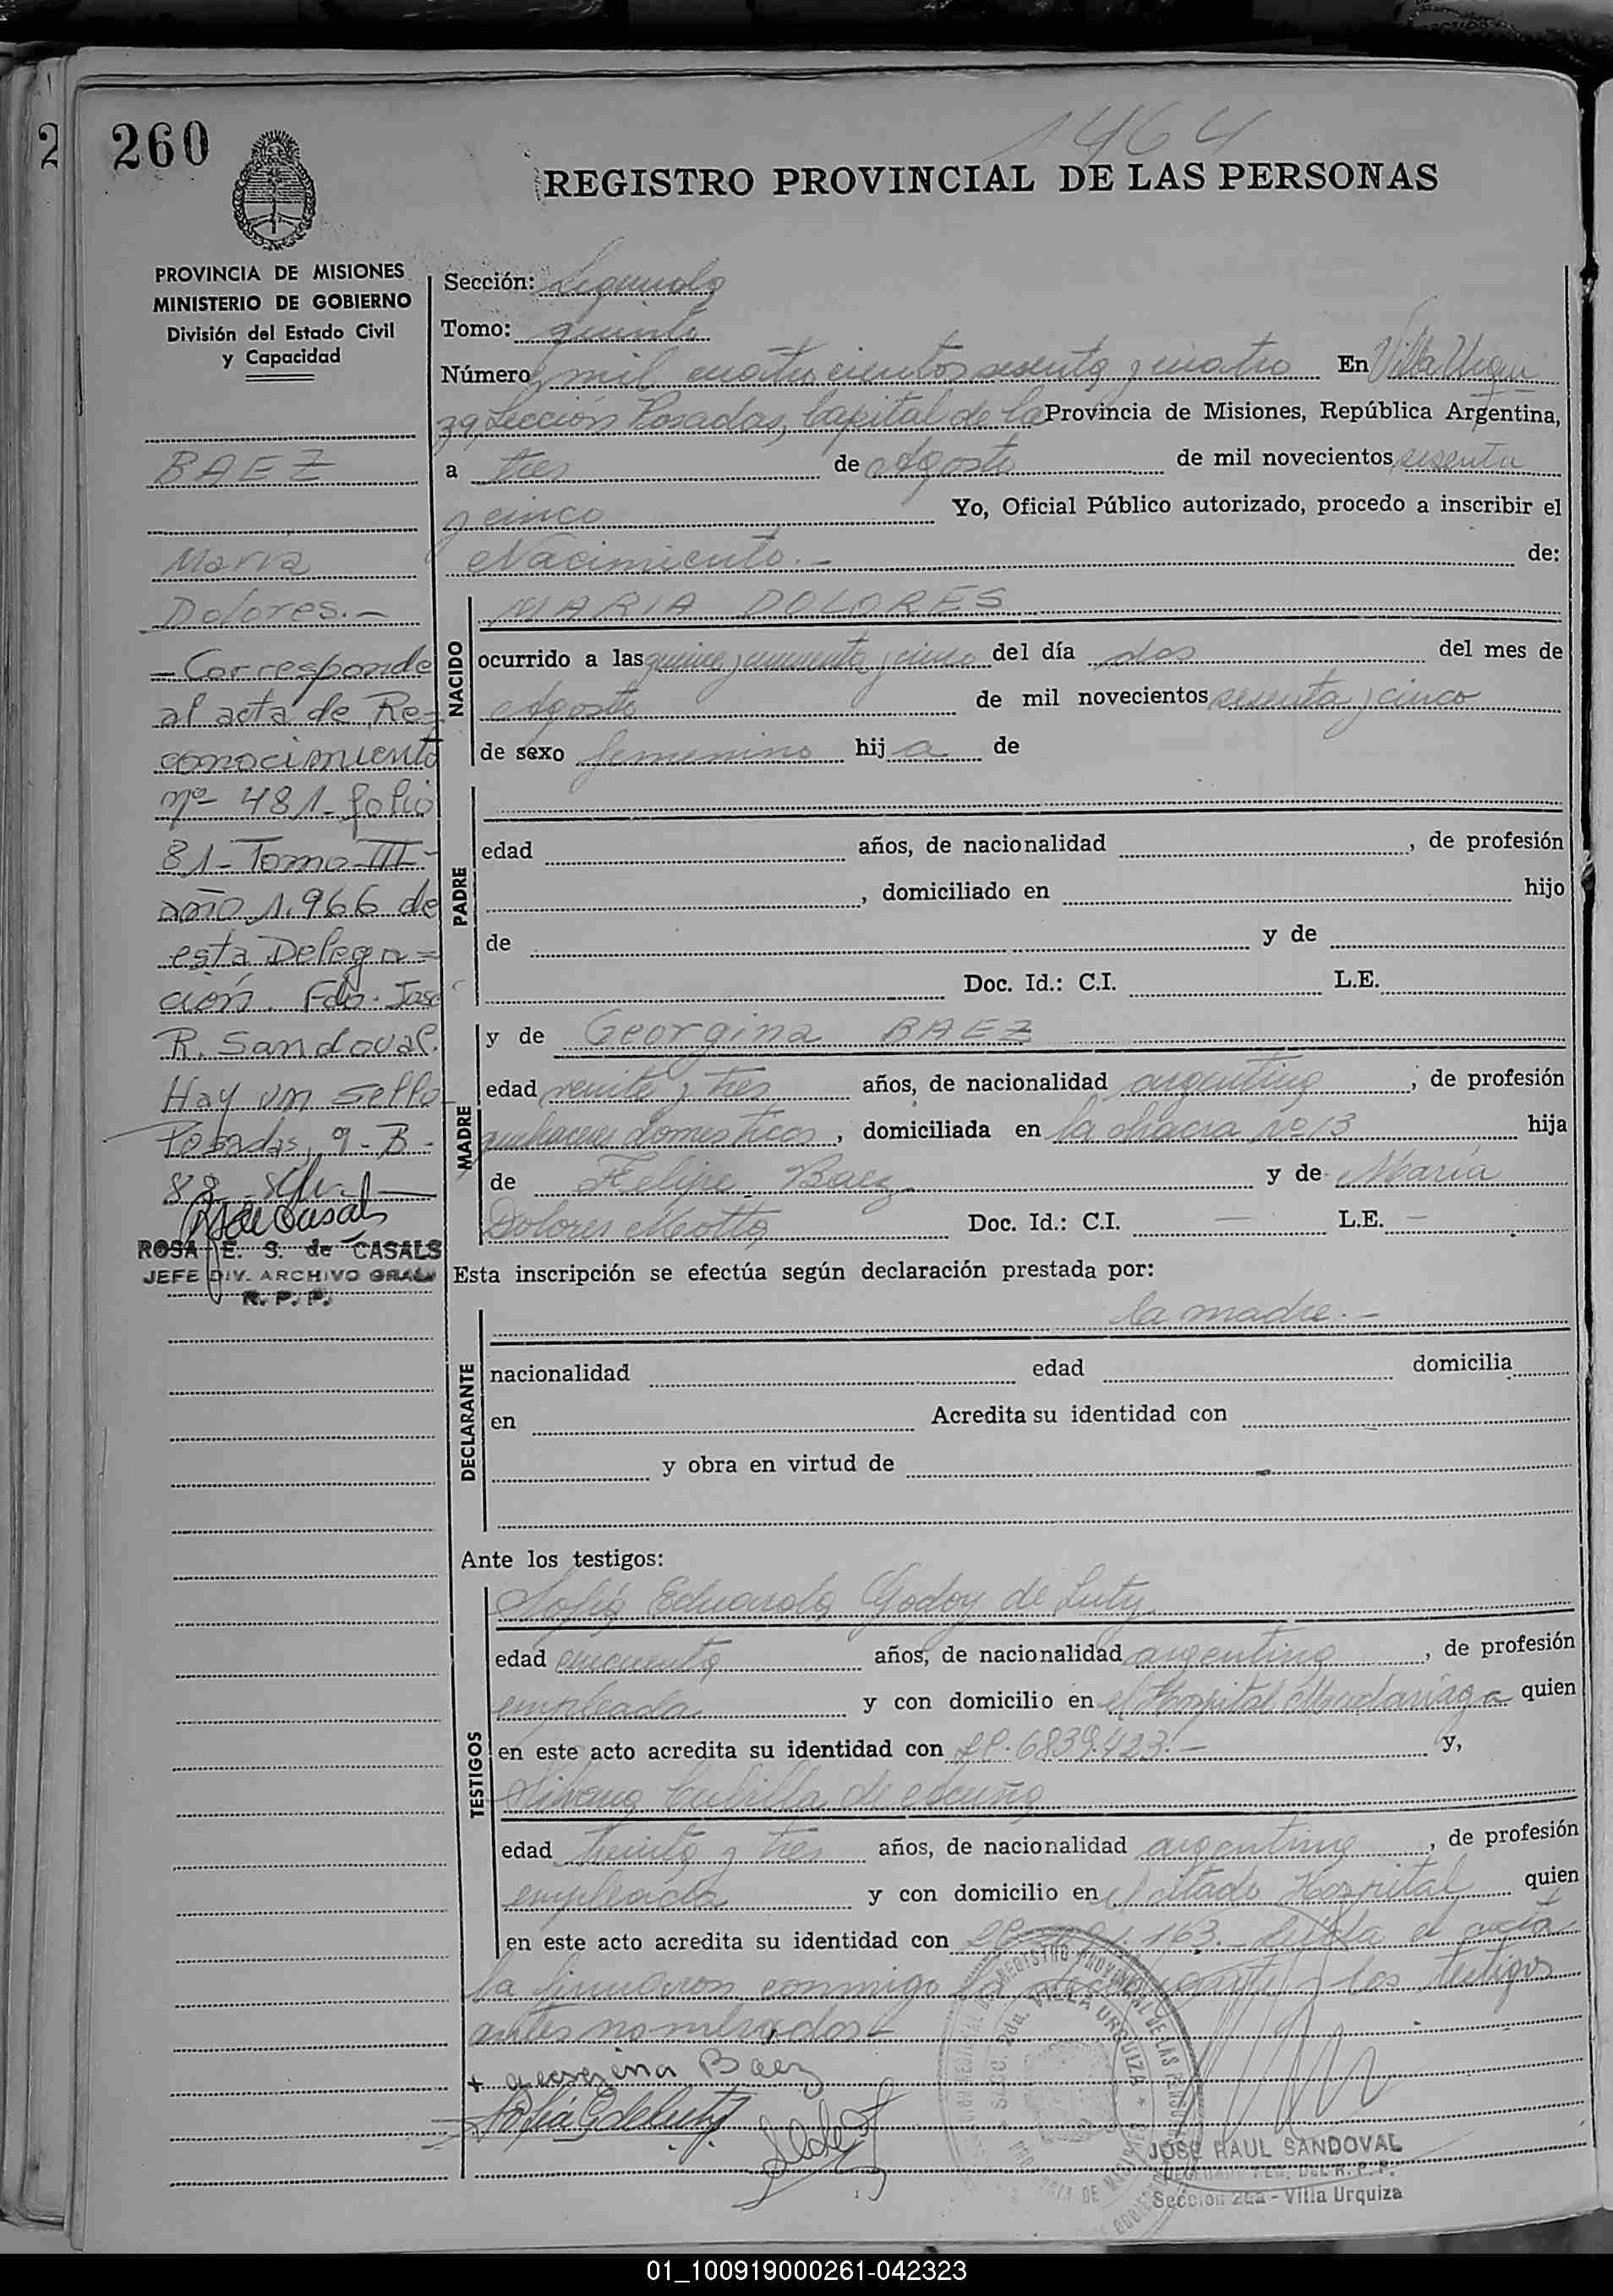 1464
260
REGISTRO PROVINCIAL DE LAS PERSONAS
PROVINCIA DE MISIONES
MINISTERIO DE GOBIERNO
División del Estado Civil
y Capacidad
BAEZ
María
Dolores.-
- Corresponde
al acta de Re=
conocimiento
nº 481- folio
81- Tomo III-
año 1.966 de
esta Delega=
ción. Fdo. José
R. Sandoval.
Hay un sello
Posadas, 9-
ROSA E. S. de CASALS
JEFE DIV. ARCHIVO GRAL
R. P. P.
Sección: Segunda
Tomo: quinto
Número mil cuatrocientos sesenta y cuatro En Villa Urqui
za, Sección Posadas, Capital de la Provincia de Misiones, República Argentina,
a tres de Agosto de mil novecientos sesenta
y cinco Yo, Oficial Público autorizado, procedo a inscribir el
Nacimiento.- de:
NACIDO
MARIA DOLORES
ocurrido a las quince y cuarenta y cinco del día dos del mes de
Agosto de mil novecientos sesenta y cinco
de sexo femenino hija de
PADRE
edad años, de nacionalidad , de profesión
, domiciliado en hijo
de y de
Doc. Id.: C.I. L.E.
MADRE
y de Georgina BAEZ
edad veinte y tres años, de nacionalidad argentina , de profesión
quehaceres domésticos , domiciliada en la chacra nº 13 hija
de Felipe Baez y de María
Dolores Meotta Doc. Id.: C.I. — L.E. —
Esta inscripción se efectúa según declaración prestada por:
DECLARANTE
la madre.-
nacionalidad edad domicilia
en Acredita su identidad con
y obra en virtud de
Ante los testigos:
TESTIGOS
Sofía Eduarda Godoy de Luty
edad cincuenta años, de nacionalidad argentina , de profesión
empleada y con domicilio en el Hospital Madariaga quien
en este acto acredita su identidad con 6839.423.- y,
Silvana Cubilla de Acuña
edad treinta y tres años, de nacionalidad argentina , de profesión
empleada y con domicilio en el citado Hospital quien
en este acto acredita su identidad con 163.- Leída el acta
la firmaron conmigo la declarante y los testigos
antes nombrados-
+ Georgina Baez
Sofía G de Luty
REGISTRO PROVINCIAL DE LAS PERSONAS
VILLA URQUIZA
JOSE RAUL SANDOVAL
Sección 2da - Villa Urquiza
01_100919000261-042323